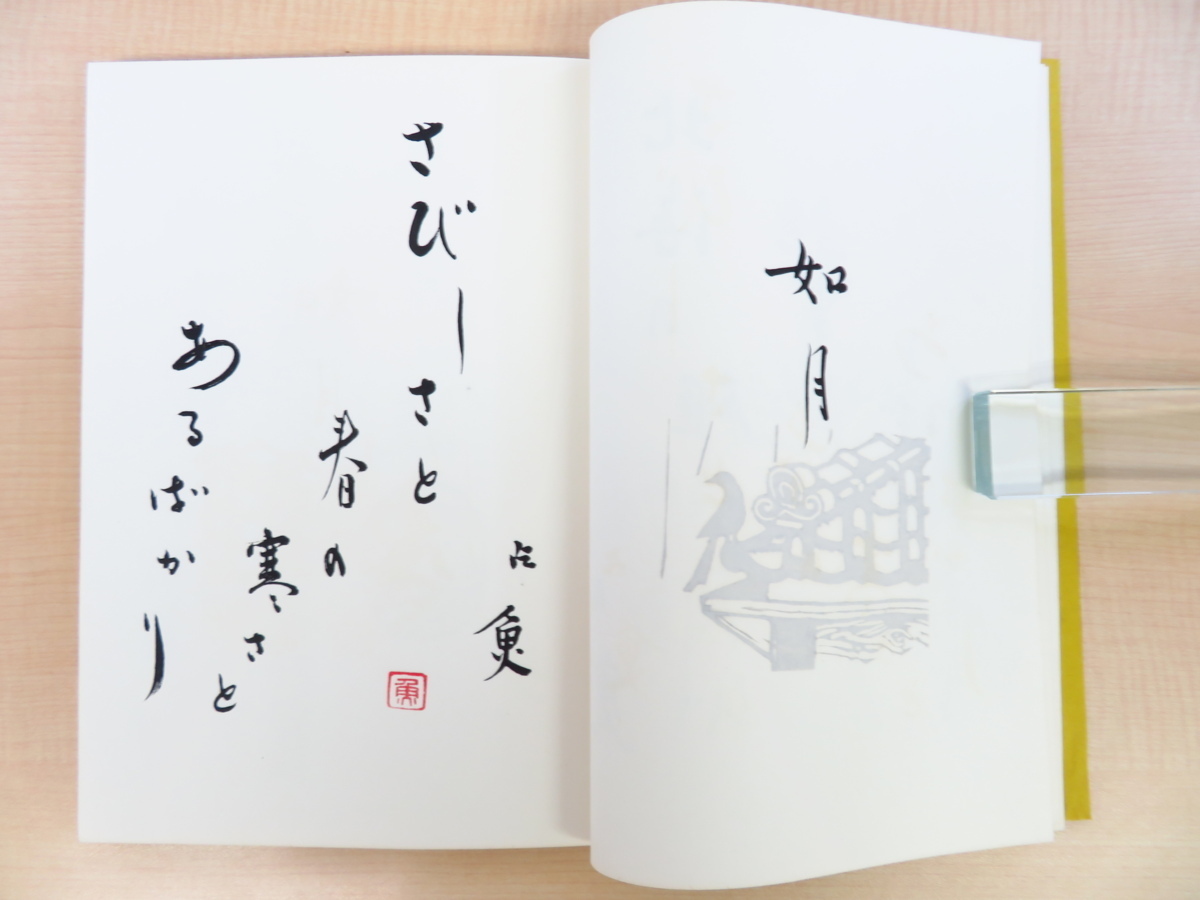 如月
占魚
さびしさと
春の
寒さと
あるばかり
魚